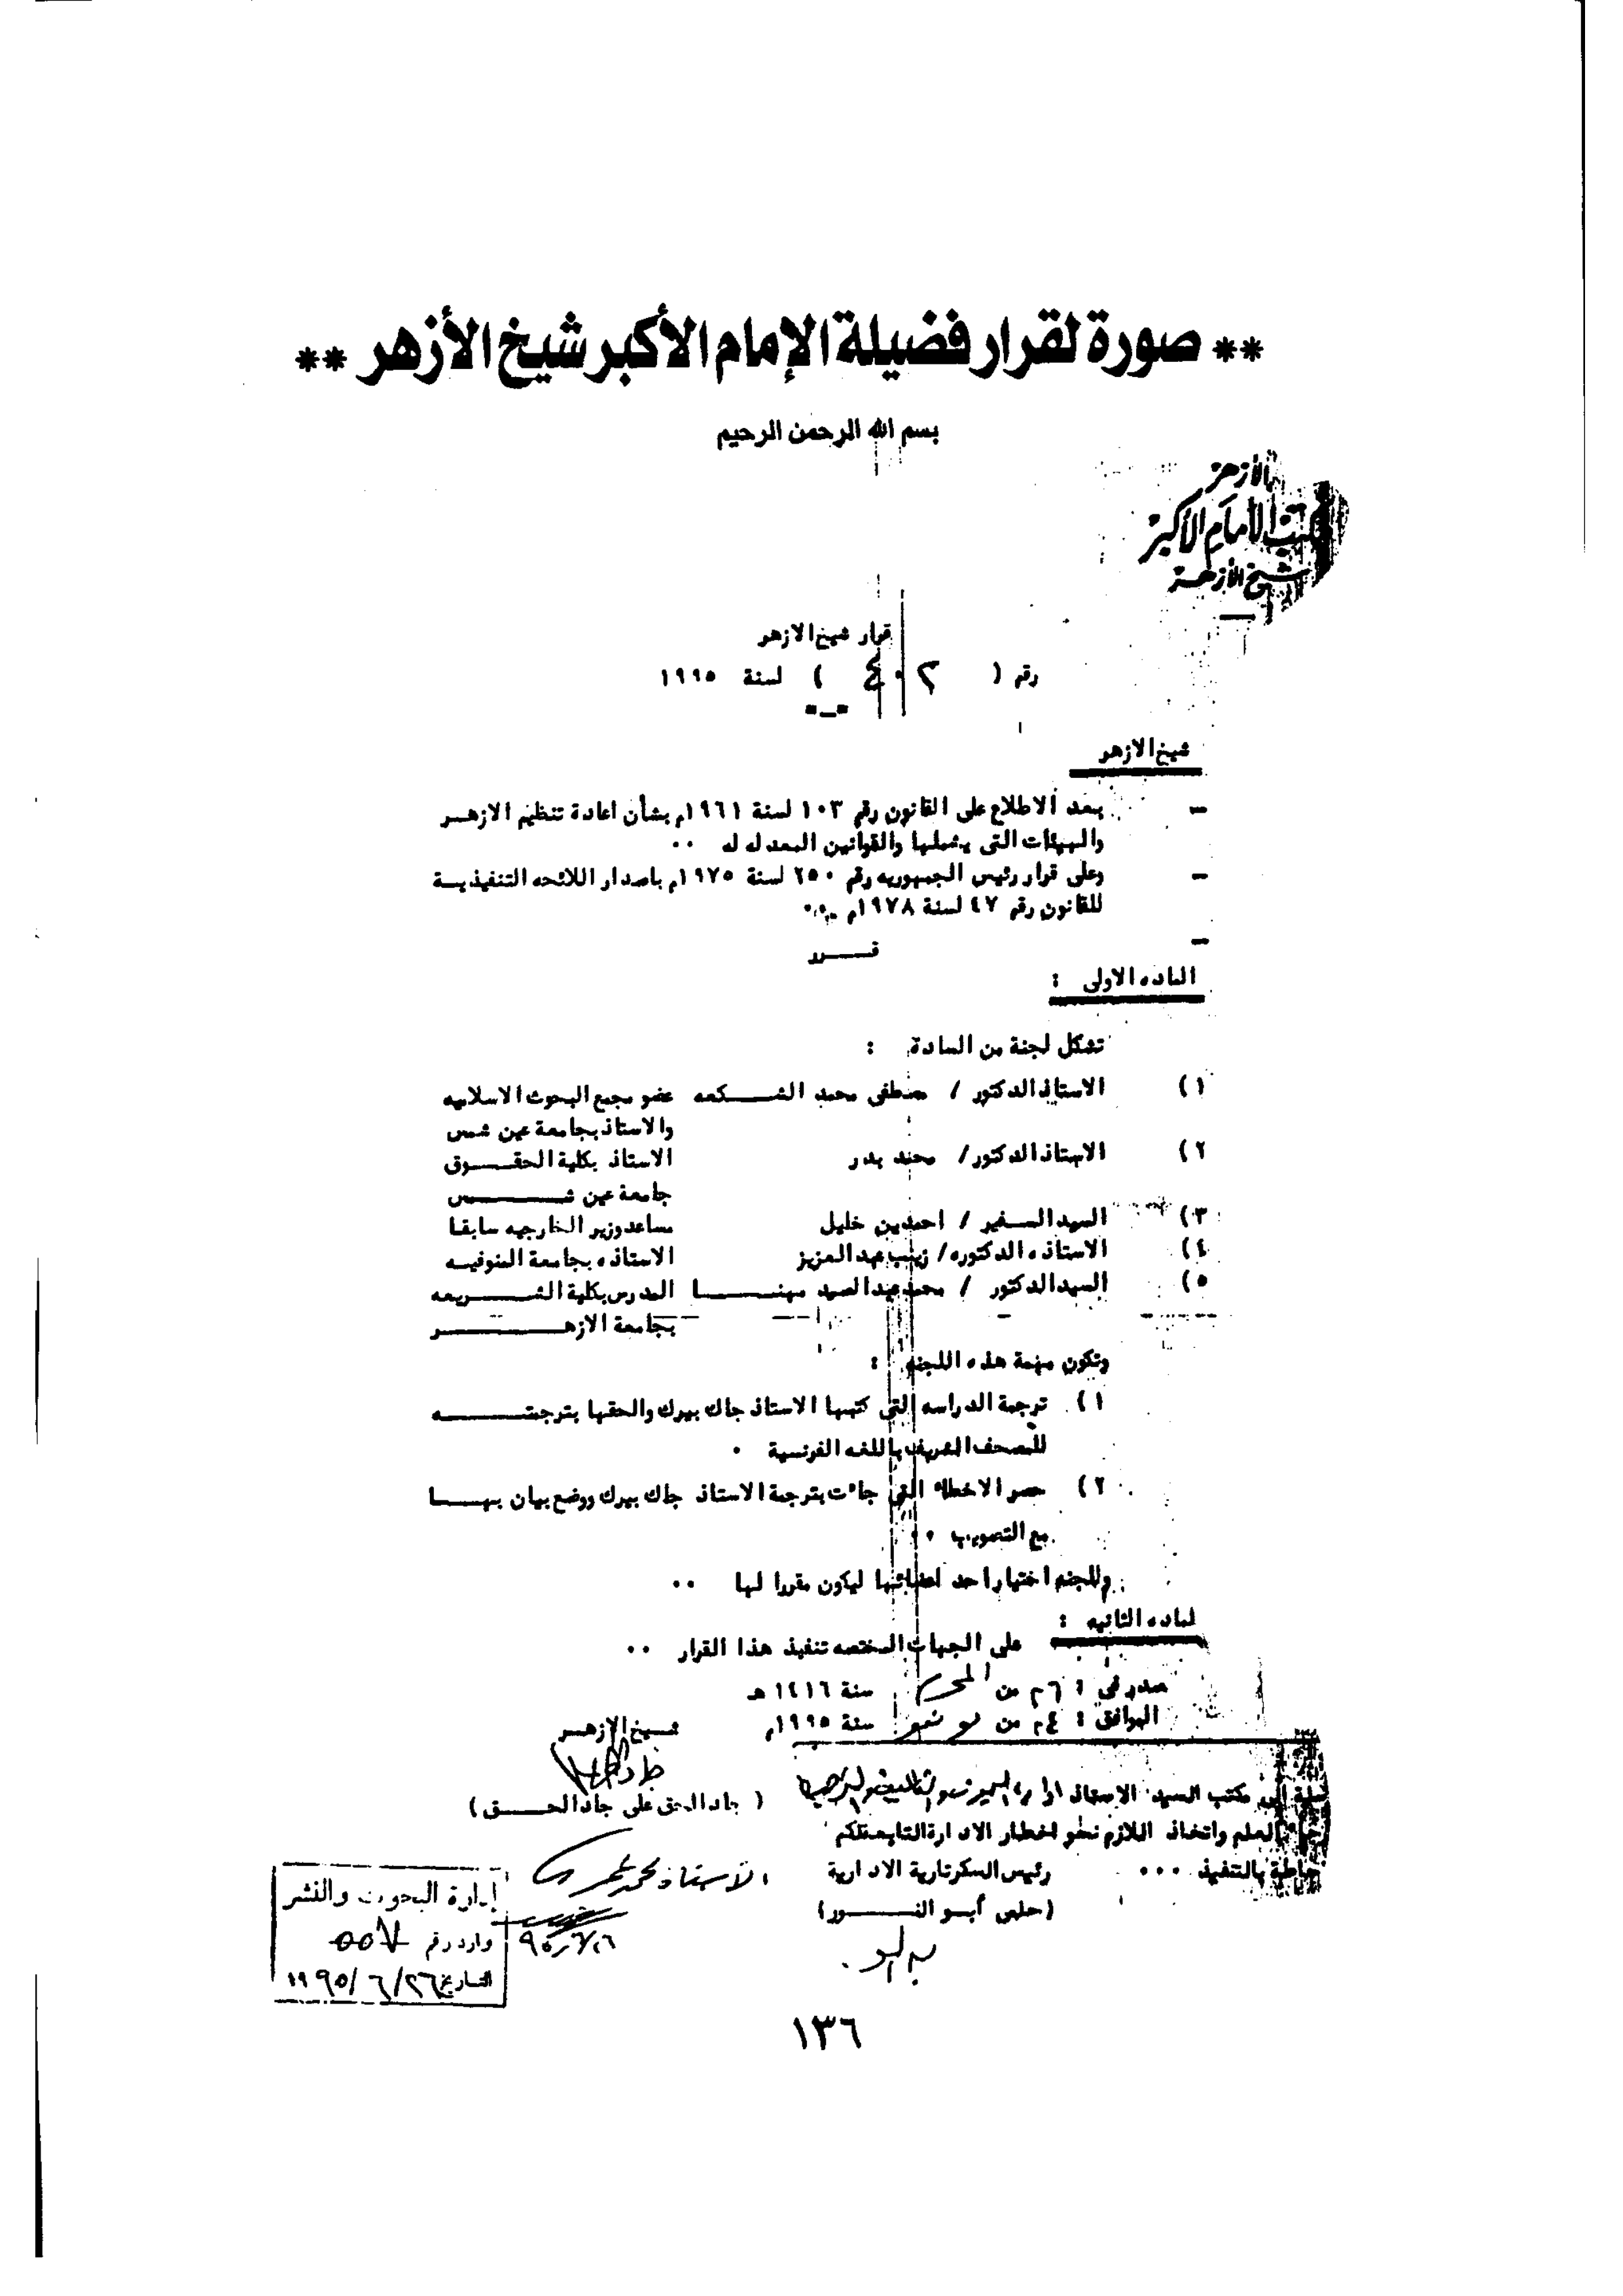 ** صورة لقرار فضيلة الإمام الأكبر شيخ الأزهر **
بسم الله الرحمن الرحيم
الأزهر
مكتب الإمام الأكبر
شيخ الأزهر
قرار شيخ الازهر
رقم ( ٤٠٢ ) لسنة ١٩٩٥
شيخ الازهر
– بعد الاطلاع على القانون رقم ١٠٣ لسنة ١٩٦١م بشأن اعادة تنظيم الازهر
والهيئات التى يشملها والقوانين المعدله له ٠٠
– وعلى قرار رئيس الجمهوريه رقم ٢٥٠ لسنة ١٩٧٥م باصدار اللائحه التنفيذية
للقانون رقم ٤٧ لسنة ١٩٧٨م
– قــرر
الماده الاولى :
تشكل لجنة من السادة :
١) الاستاذ الدكتور / مصطفى محمد الشكعه عضو مجمع البحوث الاسلاميه
والاستاذ بجامعة عين شمس
٢) الاستاذ الدكتور/ محمد بدر الاستاذ بكلية الحقوق
جامعة عين شمس
٣) السيد السفير / احمد بن خليل مساعد وزير الخارجيه سابقا
٤) الاستاذه الدكتوره/ زينب عبد العزيز الاستاذه بجامعة المنوفيه
٥) السيد الدكتور / محمد عبد الصيد مهنا المدرس بكلية الشريعه
بجامعة الازهر
وتكون مهمة هذه اللجنه :
١) ترجمة الدراسه التى كتبها الاستاذ جاك بيرك والحقها بترجمته
للمصحف الشريف باللغه الفرنسية ٠
٢) حصر الاخطاء التى جاءت بترجمة الاستاذ جاك بيرك ووضع بيان بها
مع التصويب ٠٠
وللجنه اختيار احد اعضائها ليكون مقررا لها ٠٠
لماده الثانيه :
على الجهات المختصه تنفيذ هذا القرار ٠٠
صدر فى : ٦ من المحرم سنة ١٤١٦ هـ
الموافق : ٤ من يونيو سنة ١٩٩٥م
شيخ الازهر
( جاد الحق على جاد الحق )
مكتب السيد الاستاذ
العلم واتخاذ اللازم نحو اخطار الادارة التابعة لكم
بالتنفيذ ٠٠٠ رئيس السكرتارية الادارية
(حلمى أبو النور)
الاستاذ محمد
إدارة البحوث والنشر
وارد رقم ٥٥٧
التاريخ ٢٦/٦/١٩٩٥
١٣٦